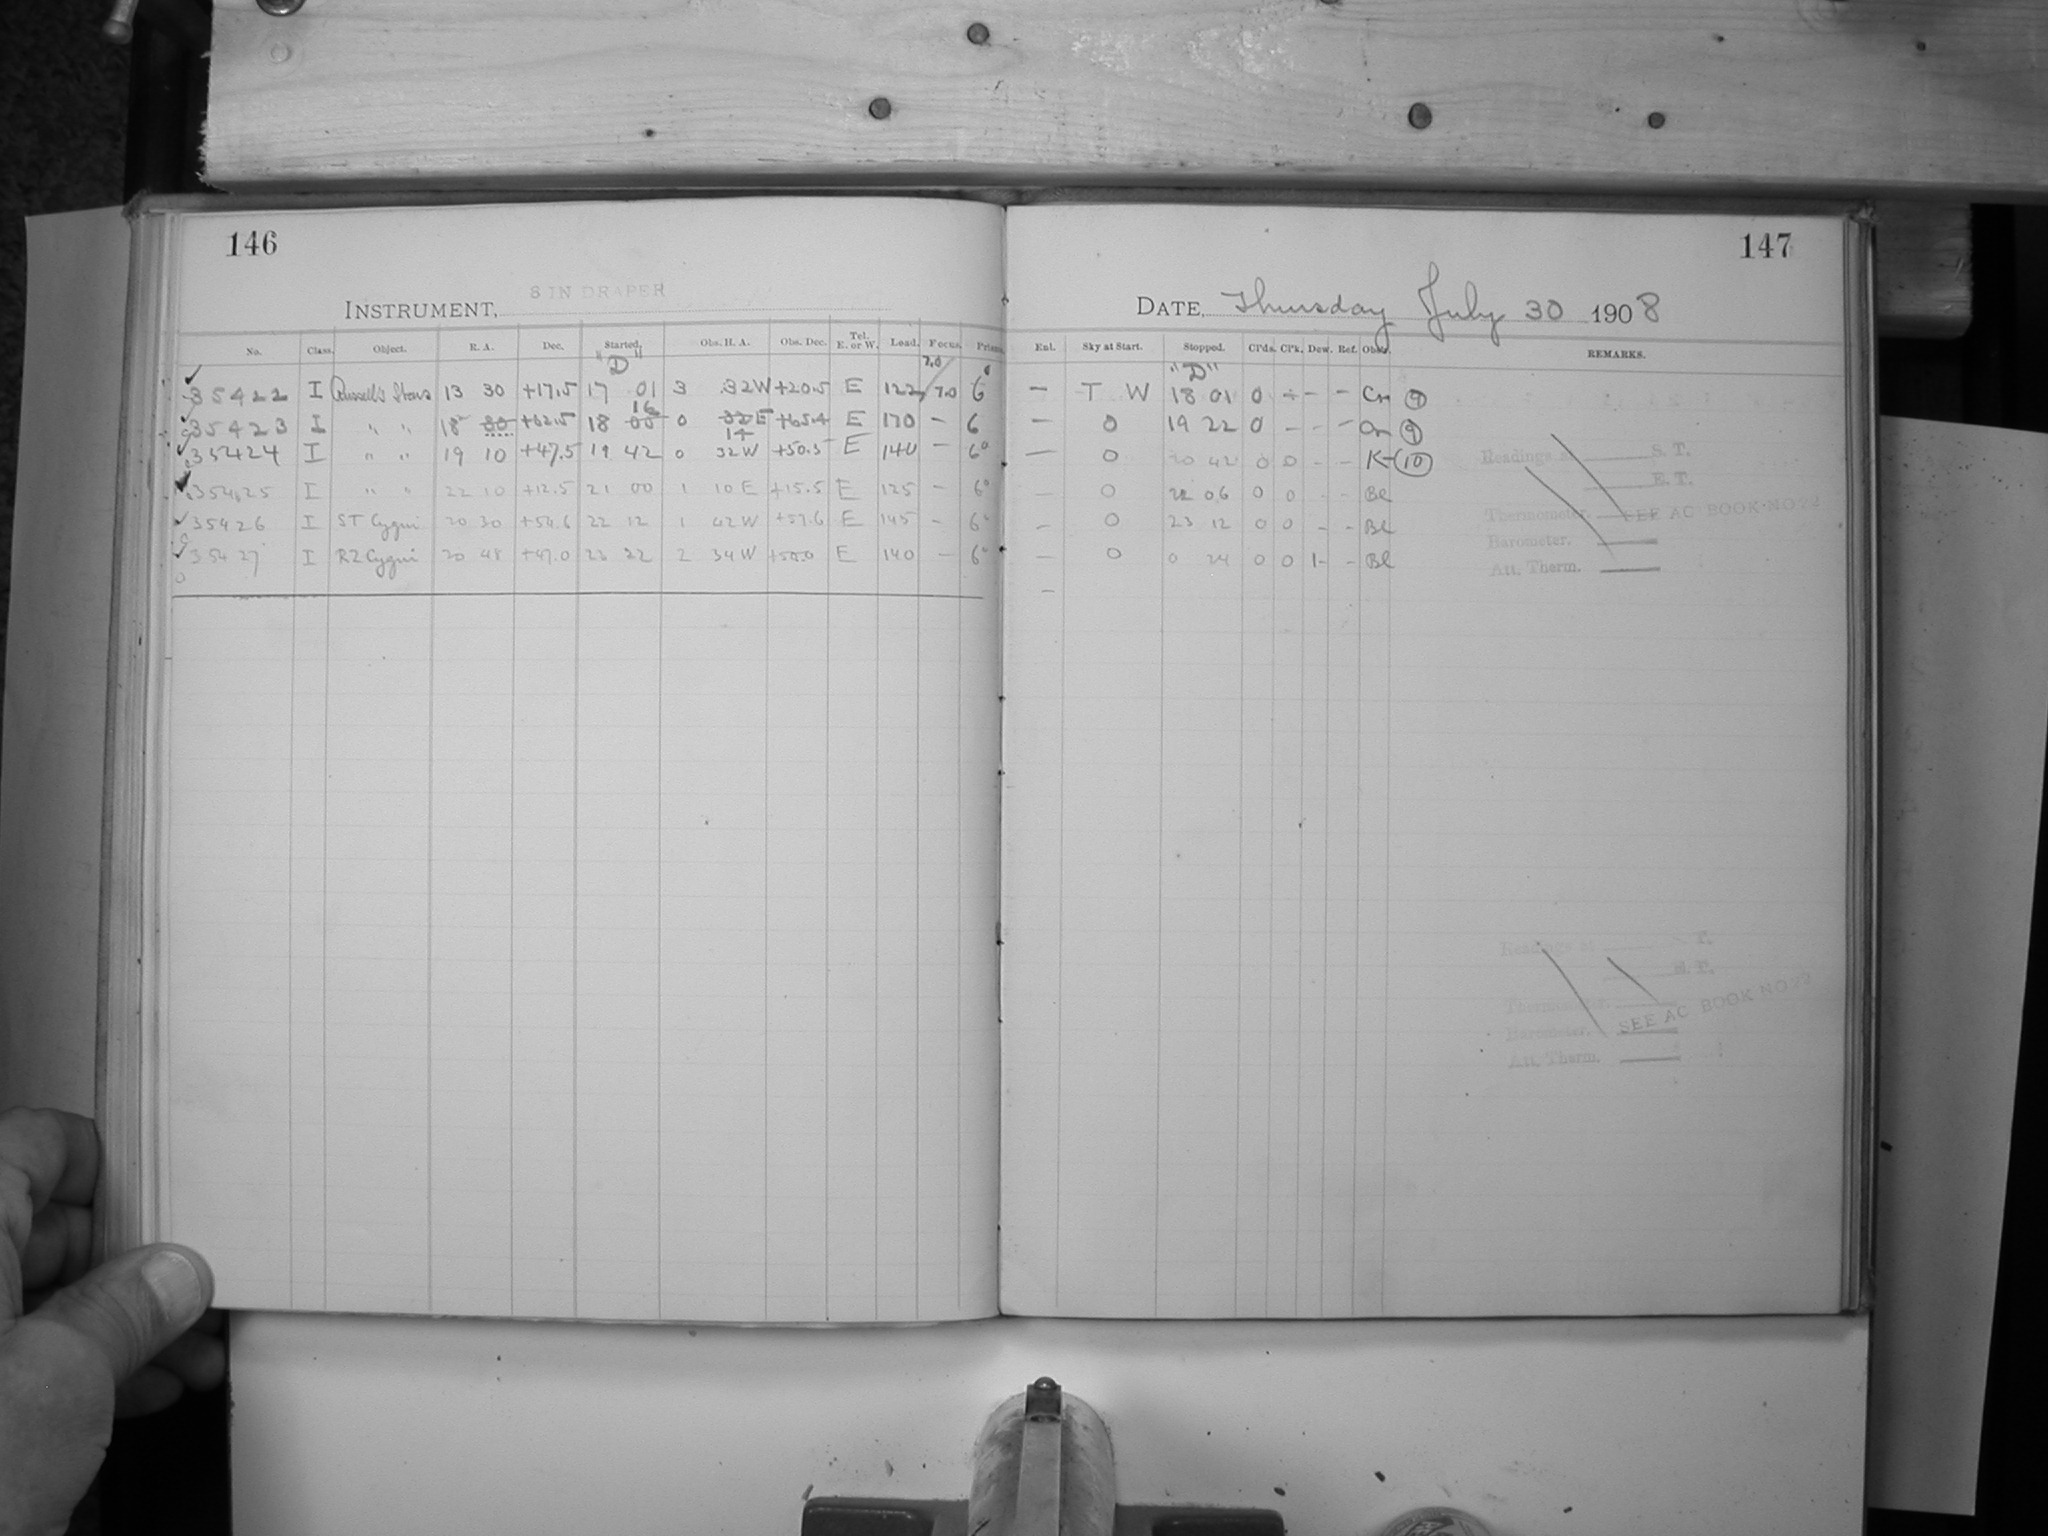 146
8 IN DRAPER
INSTRUMENT,
No. Class. Object. R. A. Dec. Started. Obs. H. A. Obs. Dec. Tel. E. or W. Load. Focus. Prisms.
"D" 7.0
35422 I Russell's Stars 13 30 +17.5 17 01 3 32W +20.5 E 122 7.0 6°
16
35423 I " " 18 30 +62.5 18 05 0 32E +65.4 E 170 - 6
14
35424 I " " 19 10 +47.5 19 42 0 32W +50.5 E 140 - 6°
35425 I " " 22 10 +12.5 21 00 1 10E +15.5 E 125 - 6°
35426 I ST Cygni 20 30 +54.6 22 12 1 42W +57.6 E 145 - 6°
35427 I RZ Cygni 20 48 +47.0 23 22 2 34W +50.0 E 140 - 6°
147
DATE, Thursday July 30 1908
Enl. Sky at Start. Stopped. Cl'ds. Cl'k. Dew. Ref. Obsr. REMARKS.
"D"
- T W 18 01 0 - - - Cn 9
- 0 19 22 0 - - - Cn 9
- 0 20 42 0 0 - - K- 10
- 0 22 06 0 0 - - Bl
- 0 23 12 0 0 - - Bl
- 0 0 24 0 0 1- - Bl
-
Readings at S. T.
E. T.
Thermometer. SEE AC BOOK NO 22
Barometer.
Att. Therm.
Readings at S. T.
E. T.
Thermometer.
Barometer. SEE AC BOOK NO 22
Att. Therm.